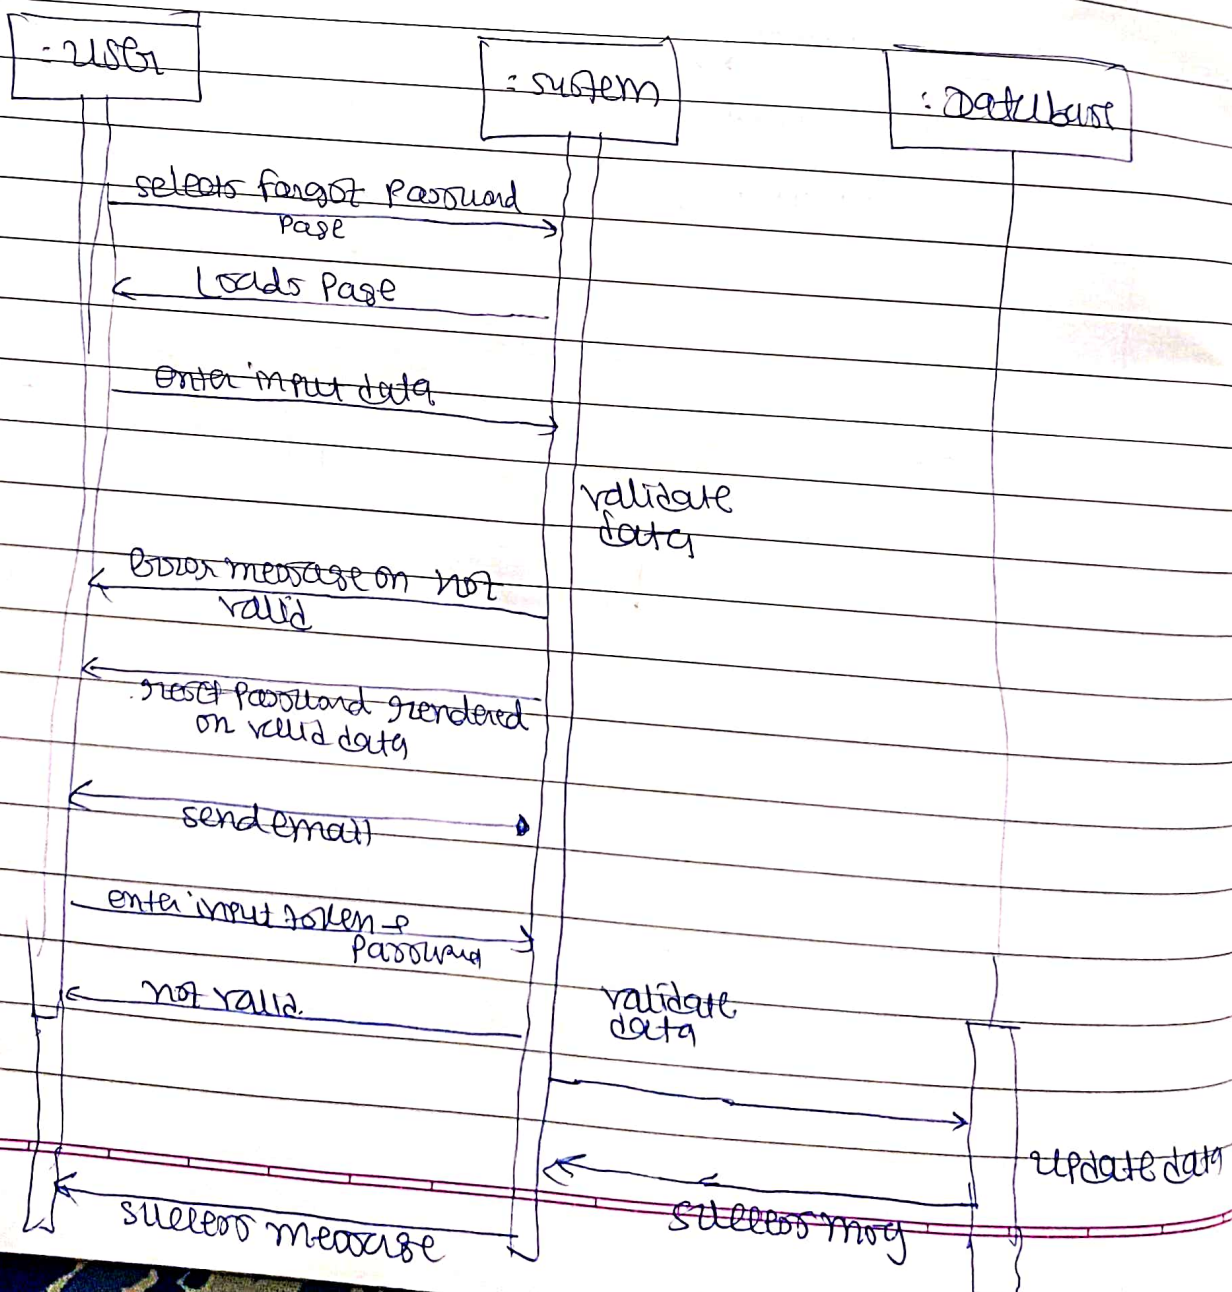 : User
: System
: Database
selects forgot Password
Page
Loads Page
enter input data
validate
data
Error message on not
valid
reset Password rendered
on valid data
send email
enter input token &
Password
not valid
validate
data
update data
success msg
success message